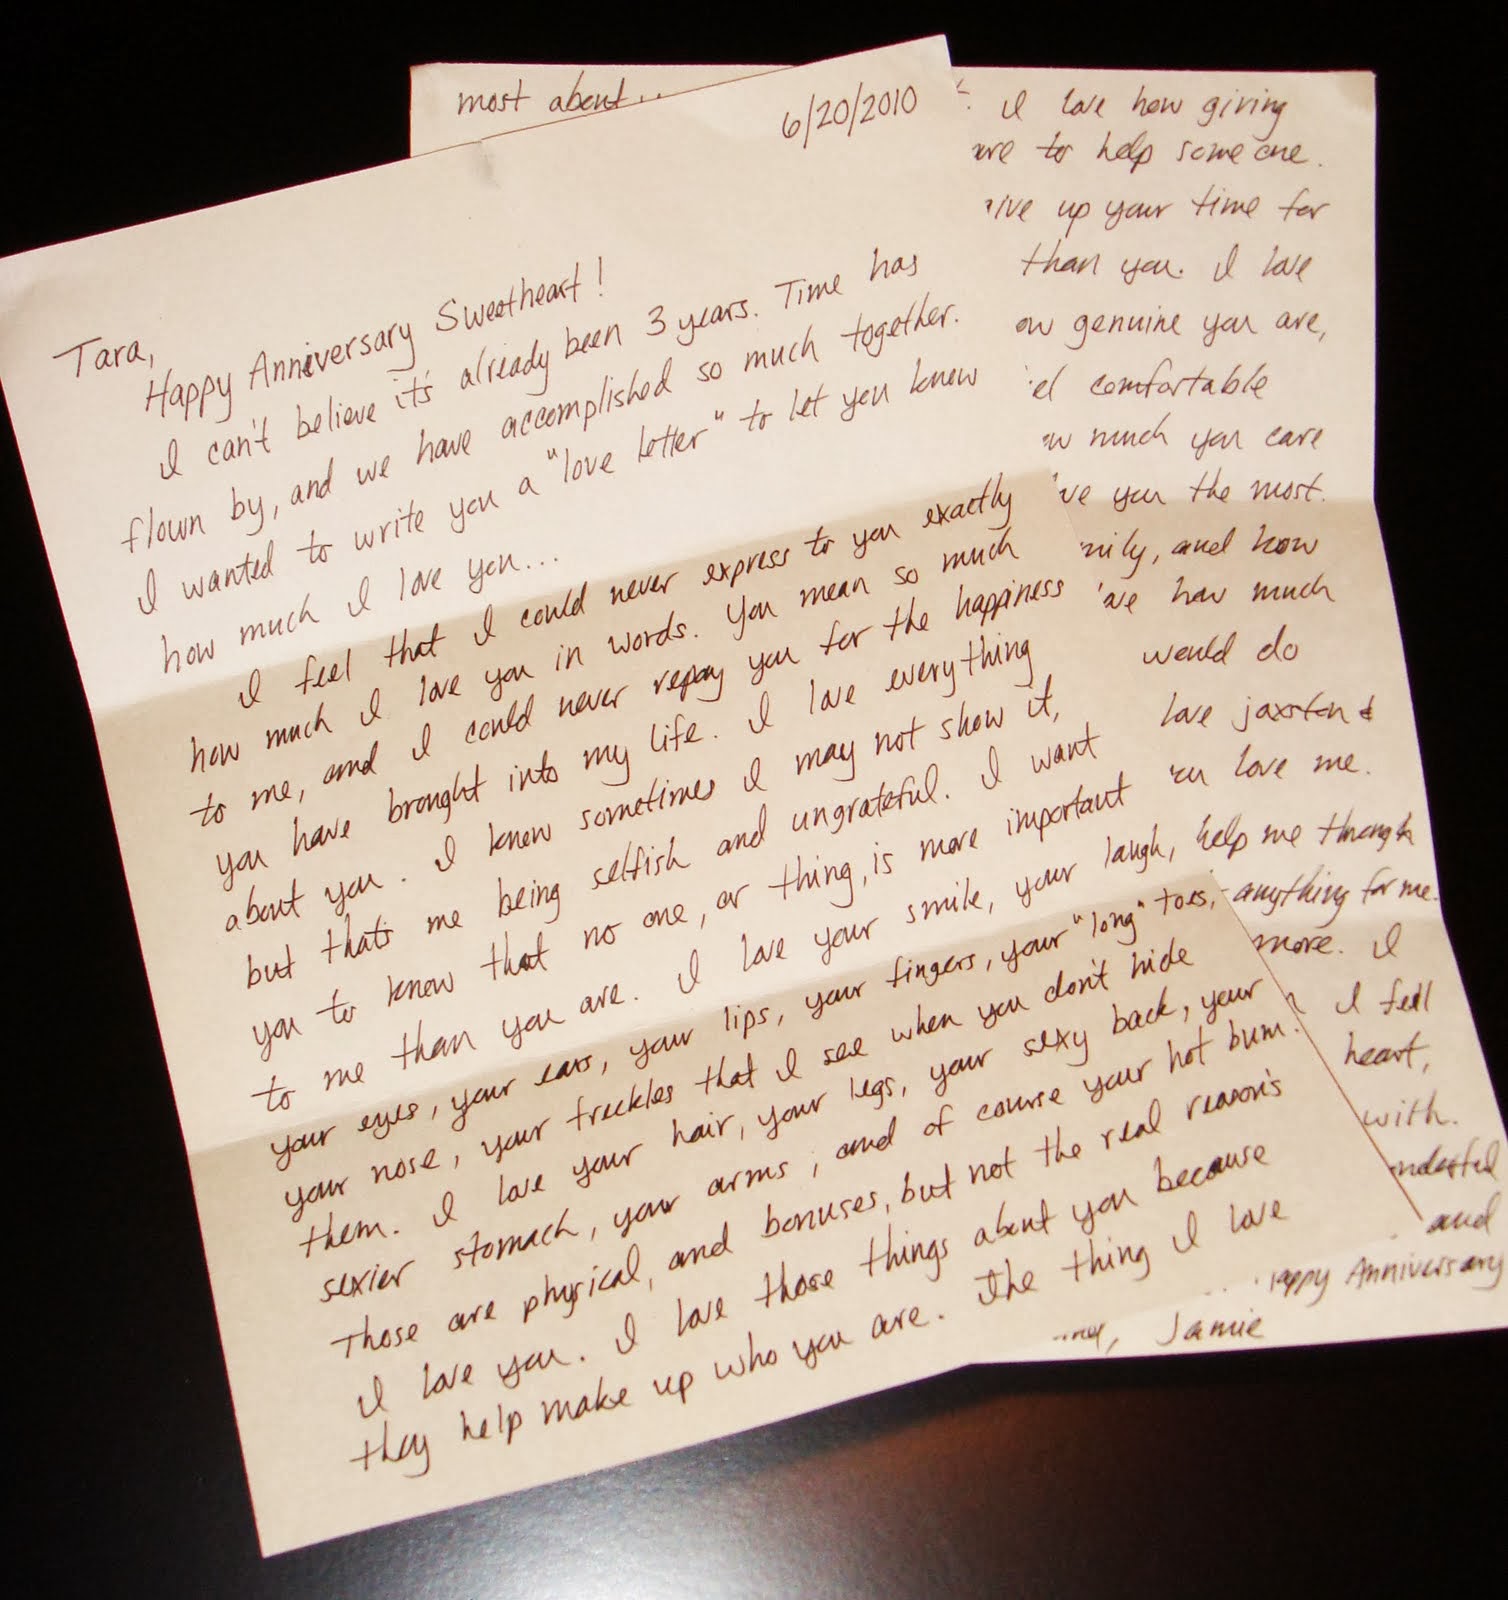 6/20/2010
Tara,
Happy Anniversary Sweetheart!
I can't believe it's already been 3 years. Time has
flown by, and we have accomplished so much together.
I wanted to write you a "love letter" to let you know
how much I love you...
I feel that I could never express to you exactly
how much I love you in words. You mean so much
to me, and I could never repay you for the happiness
you have brought into my life. I love everything
about you. I know sometimes I may not show it,
but thats me being selfish and ungrateful. I want
you to know that no one, or thing, is more important
to me than you are. I love your smile, your laugh,
your eyes, your ears, your lips, your fingers, your "long" toes,
your nose, your freckles that I see when you don't hide
them. I love your hair, your legs, your sexy back, your
sexier stomach, your arms, and of course your hot bum.
Those are physical, and bonuses, but not the real reason's
I love you. I love those things about you because
they help make up who you are. The thing I love
most about...
I love how giving
to help someone.
up your time for
than you. I love
genuine you are,
comfortable
much you care
you the most.
and how
how much
would do
love jaxston &
love me.
help me through
anything for me.
more. I
I fell
heart,
with.
and
Anniversary
Jamie